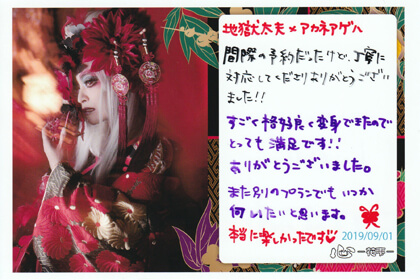 地獄太夫×アカネアゲハ
間際の予約だったけど、丁寧に
対応してくださりありがとうござい
ました!!
すごく格好良く変身できたので
とっても満足です!!
ありがとうございました。
また別のプランでもいつか
伺いたいと思います。
本当に楽しかったです
2019/09/01
心 一花雫一